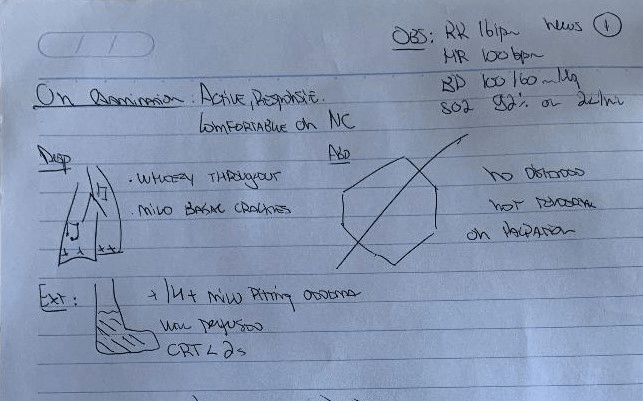 OBS: RR 16ipm news +
HR 100bpm
BP 100/60 mmHg
SO2 92% on 2L/min
On Examination: Active, Responsive.
Comfortable on NC
Resp
· Wheezy throughout
· Mild basal crackles
++ ++
Abd
no
not
on palpation
Ext: +/4+ mild pitting oedema
well perfused
CRT < 2s